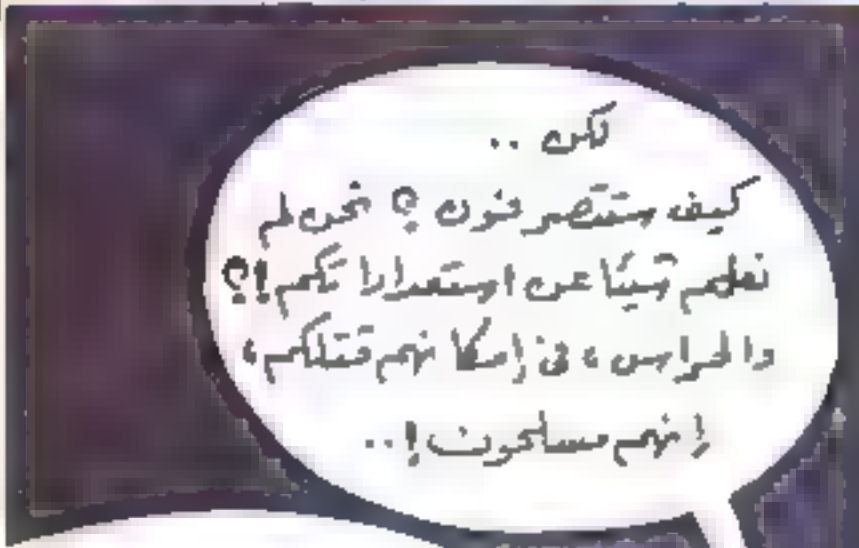 لكن ..
كيف ستتصرفون ؟ نحن لم
نعلم شيئا عن استعداداتكم !؟
والحراس ، في إمكانهم قتلكم ،
إنهم مسلحون !..